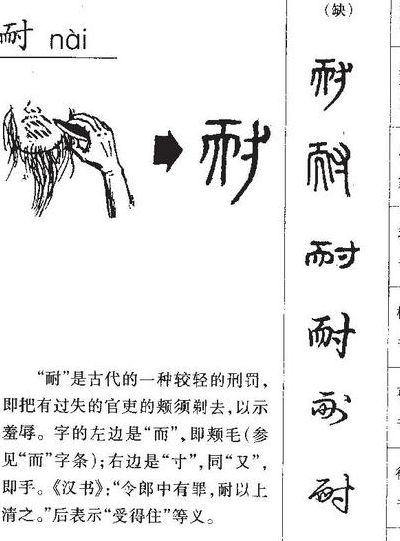 耐 nài
耐
“耐”是古代的一种较轻的刑罚，
即把有过失的官吏的颊须剃去，以示
羞辱。字的左边是“而”，即颊毛（参
见“而”字条）；右边是“寸”，同“又”，
即手。《汉书》：“令郎中有罪，耐以上
清之。”后表示“受得住”等义。
（缺）
耐
耐
耐
耐
耐
耐